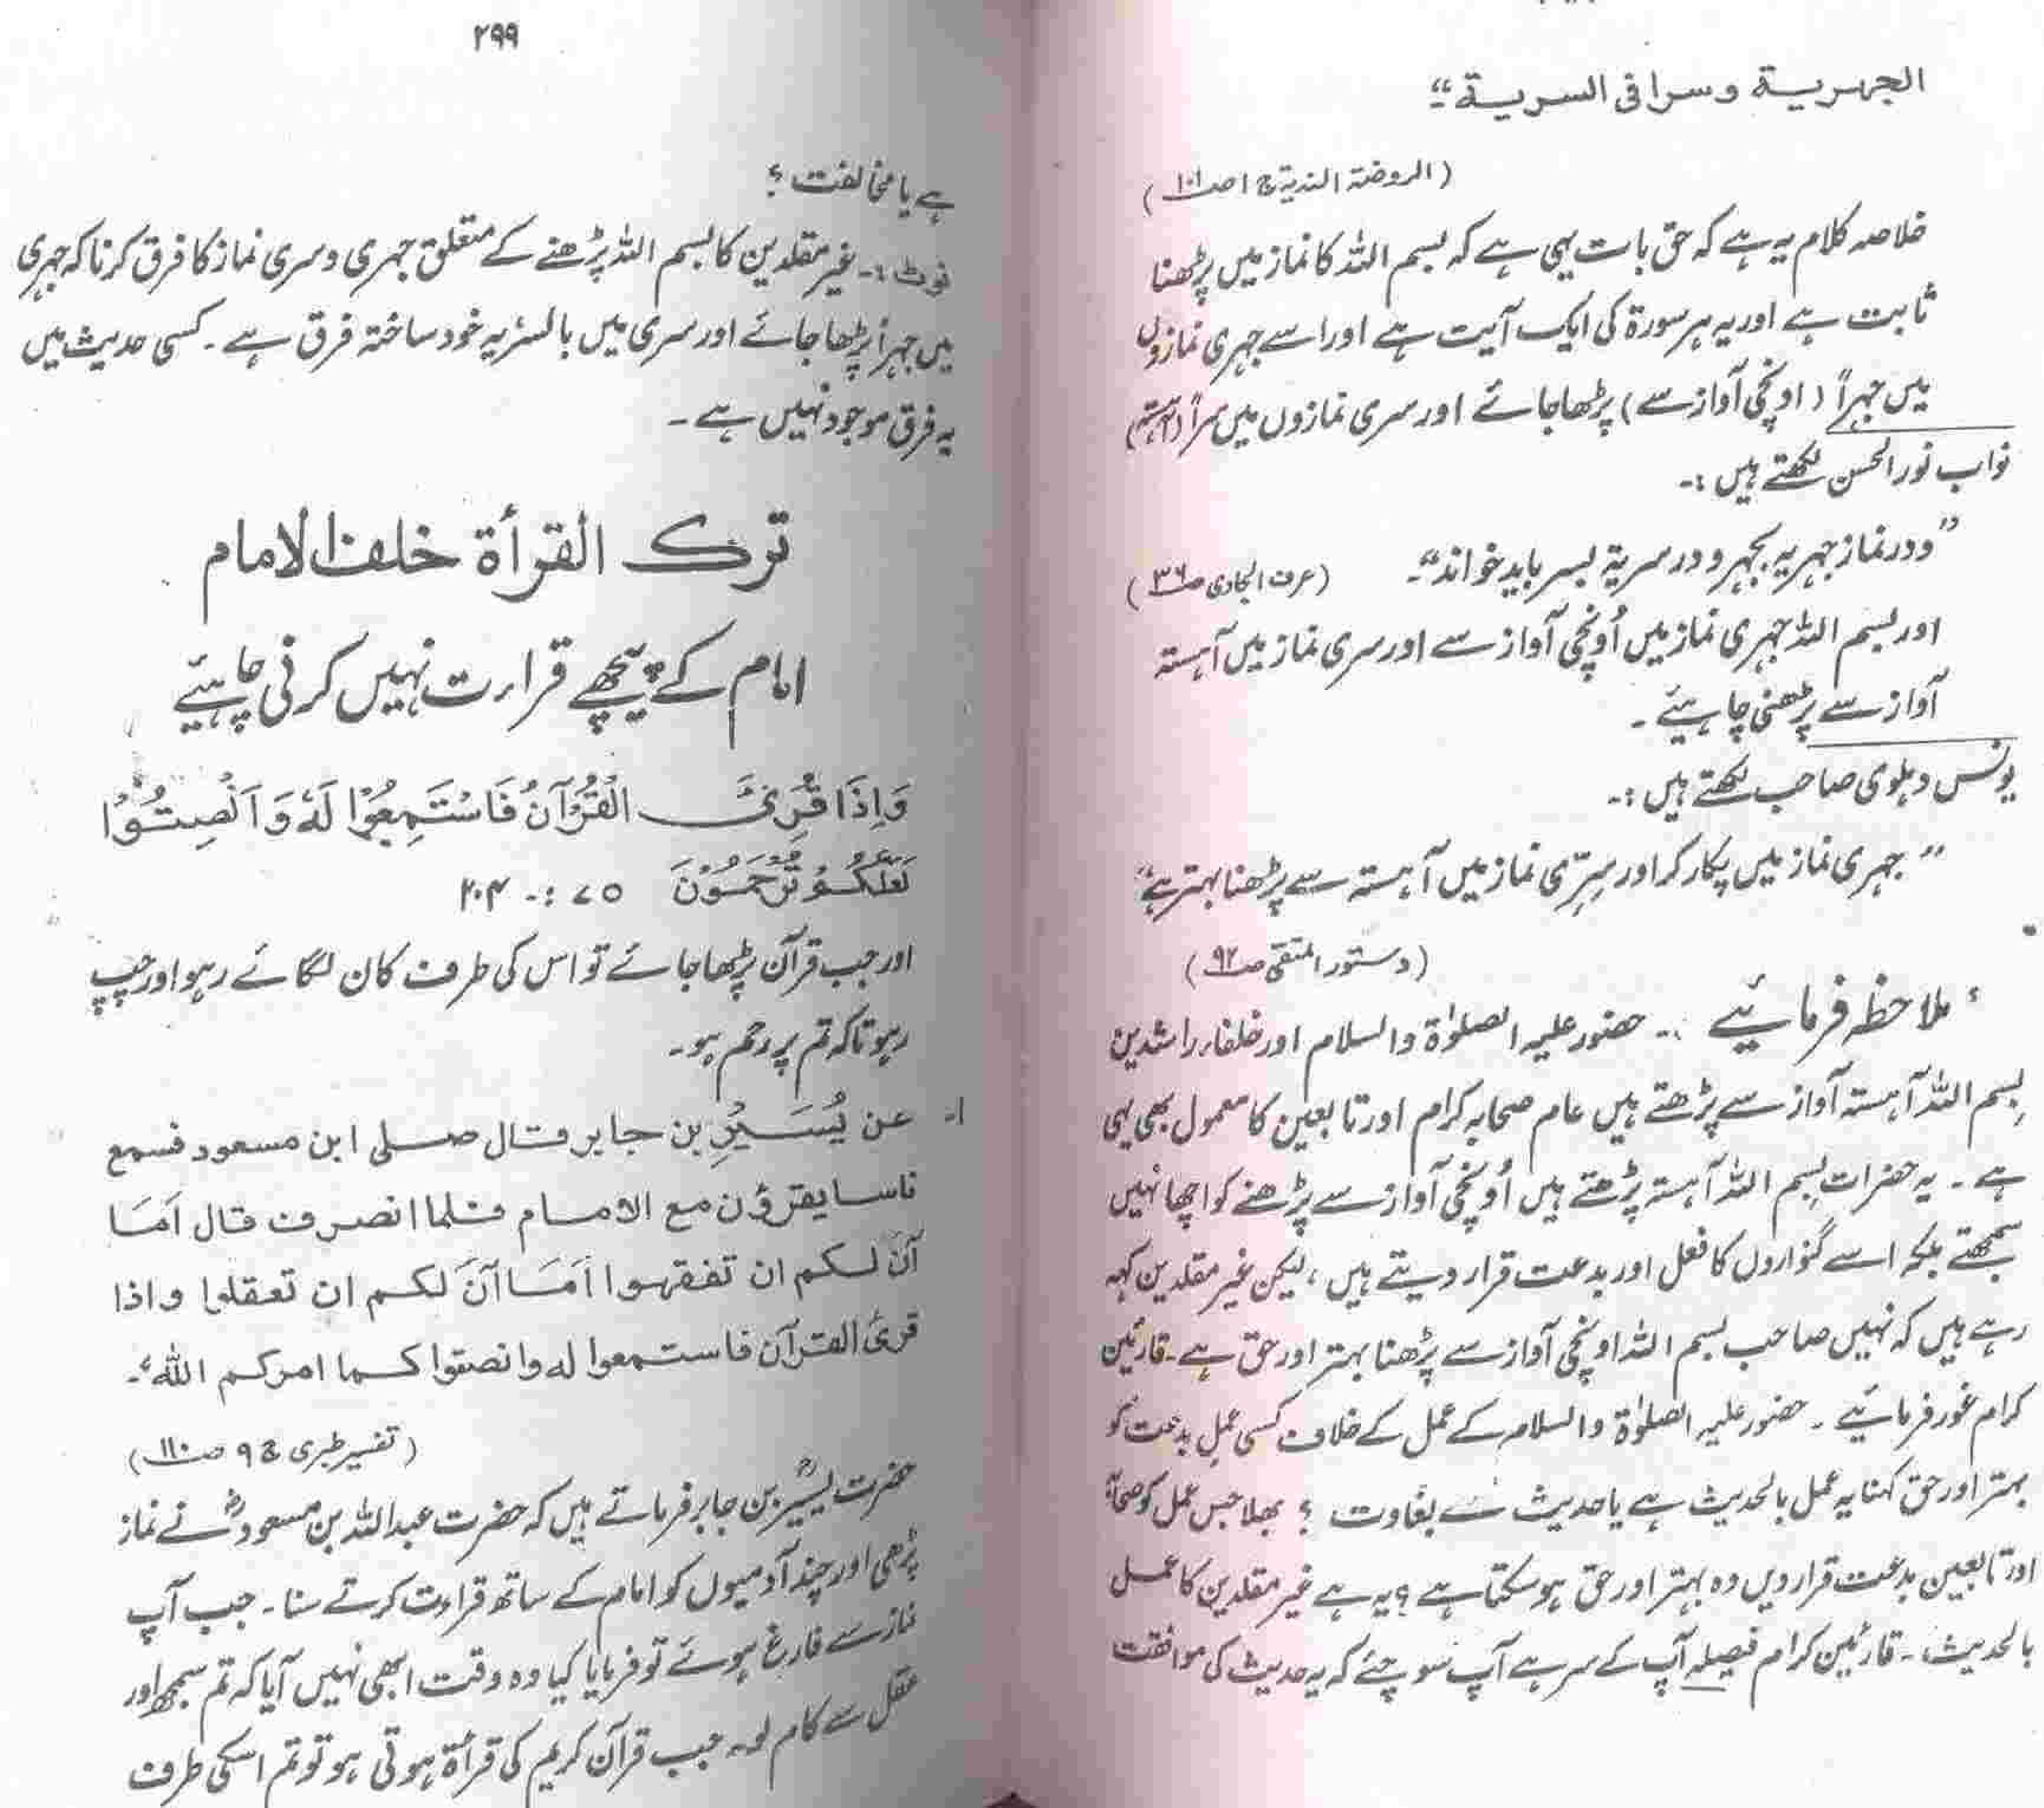 الجهرية وسرا فی السرية“۔
(الروضۃ الندیۃ ج ۱ صـ ۱۰۱)
خلاصہ کلام یہ ہے کہ حق بات یہی ہے کہ بسم اللہ کا نماز میں پڑھنا
ثابت ہے اور یہ ہر سورۃ کی ایک آیت ہے اور اسے جہری نمازوں
میں جہراً (اونچی آواز سے) پڑھا جائے اور سری نمازوں میں سراً (آہستہ)
نواب نور الحسن لکھتے ہیں :۔
”ودر نماز جہریہ بجہر و در سریۃ بسر باید خواند“۔ (عرف الجادی صـ ۳۶)
اور بسم اللہ جہری نماز میں اُونچی آواز سے اور سری نماز میں آہستہ
آواز سے پڑھنی چاہیئے ۔
یونس دہلوی صاحب لکھتے ہیں :۔
”جہری نماز میں پکار کر اور سِرّی نماز میں آہستہ سے پڑھنا بہتر ہے“
(دستور المتقی صـ ۹۲)
ملاحظہ فرمائیے ۔۔ حضور علیہ الصلوٰۃ والسلام اور خلفاء راشدین
بِسم اللہ آہستہ آواز سے پڑھتے ہیں عام صحابہ کرام اور تابعین کا معمول بھی یہی
ہے ۔ یہ حضرات بِسم اللہ آہستہ پڑھتے ہیں اُونچی آواز سے پڑھنے کو اچھا نہیں
سمجھتے بلکہ اسے گنواروں کا فعل اور بدعت قرار دیتے ہیں ، لیکن غیر مقلدین کہہ
رہے ہیں کہ نہیں صاحب بسم اللہ اونچی آواز سے پڑھنا بہتر اور حق ہے ۔ قارئین
کرام غور فرمائیے ۔ حضور علیہ الصلوٰۃ والسلام کے عمل کے خلاف کسی عملِ بدعت کو
بہتر اور حق کہنا یہ عمل بالحدیث ہے یا حدیث سے بغاوت ؟ بھلا جس عمل کو صحابہ
اور تابعین بدعت قرار دیں وہ بہتر اور حق ہو سکتا ہے ؟ یہ ہے غیر مقلدین کا عمل
بالحدیث ۔ قارئین کرام فیصلہ آپ کے سر ہے آپ سوچئے کہ یہ حدیث کی موافقت
۲۹۹
ہے یا مخالفت ؟
نوٹ :۔ غیر مقلدین کا بسم اللہ پڑھنے کے متعلق جہری وسری نماز کا فرق کرنا کہ جہری
میں جہراً پڑھا جائے اور سری میں بالسّر یہ خود ساختہ فرق ہے ۔ کسی حدیث میں
یہ فرق موجود نہیں ہے ۔
ترک القرأۃ خلف الامام
امام کے پیچھے قراءت نہیں کرنی چاہیئے
وَاِذَا قُرِئَ الْقُرْآنُ فَاسْتَمِعُوْا لَهٗ وَاَنْصِتُوْا
لَعَلَّكُمْ تُرْحَمُوْنَ ۷۵ :۔ ۲۰۴
اور جب قرآن پڑھا جائے تو اس کی طرف کان لگائے رہو اور چپ
رہو تاکہ تم پر رحم ہو ۔
۱۔ عن يُسَيْرِ بن جابر قال صلى ابن مسعود فسمع
ناسا يقرؤن مع الامام فلما انصرف قال اَمَا
آنَ لكم ان تفقهوا اَمَا آنَ لكم ان تعقلوا واذا
قرئ القرآن فاستمعوا له وانصتوا كما امركم الله“۔
(تفسیر طبری ج ۹ صـ ۱۱۰)
حضرت یُسَیر بن جابر فرماتے ہیں کہ حضرت عبداللہ بن مسعودؓ نے نماز
پڑھی اور چند آدمیوں کو امام کے ساتھ قراءت کرتے سنا ۔ جب آپ
نماز سے فارغ ہوئے تو فرمایا کیا وہ وقت ابھی نہیں آیا کہ تم سمجھ اور
عقل سے کام لو ۔ جب قرآن کریم کی قرأۃ ہوتی ہو تو تم اسکی طرف